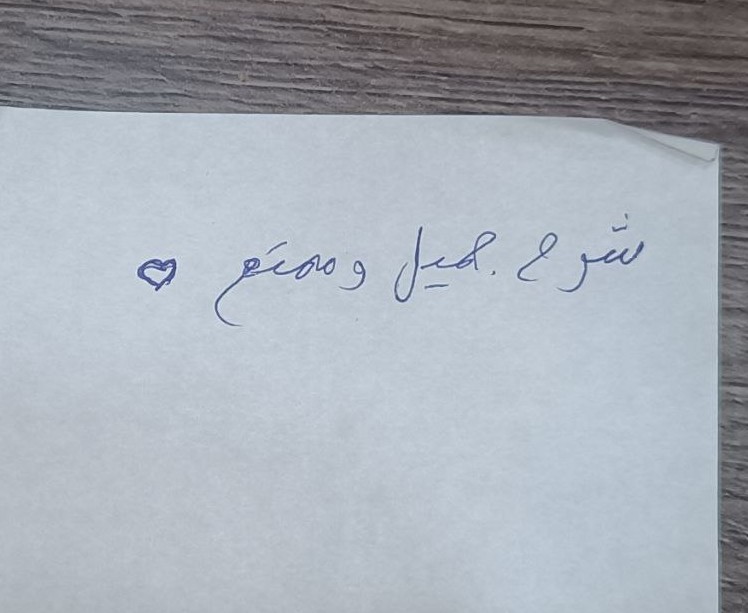 شرح جميل وممتع ♡